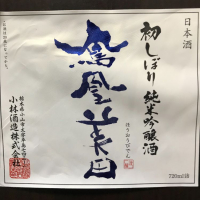 日本酒
初しぼり
純米吟醸酒
鳳凰美田
ほうおうびでん
小林酒造株式会社
720ml詰